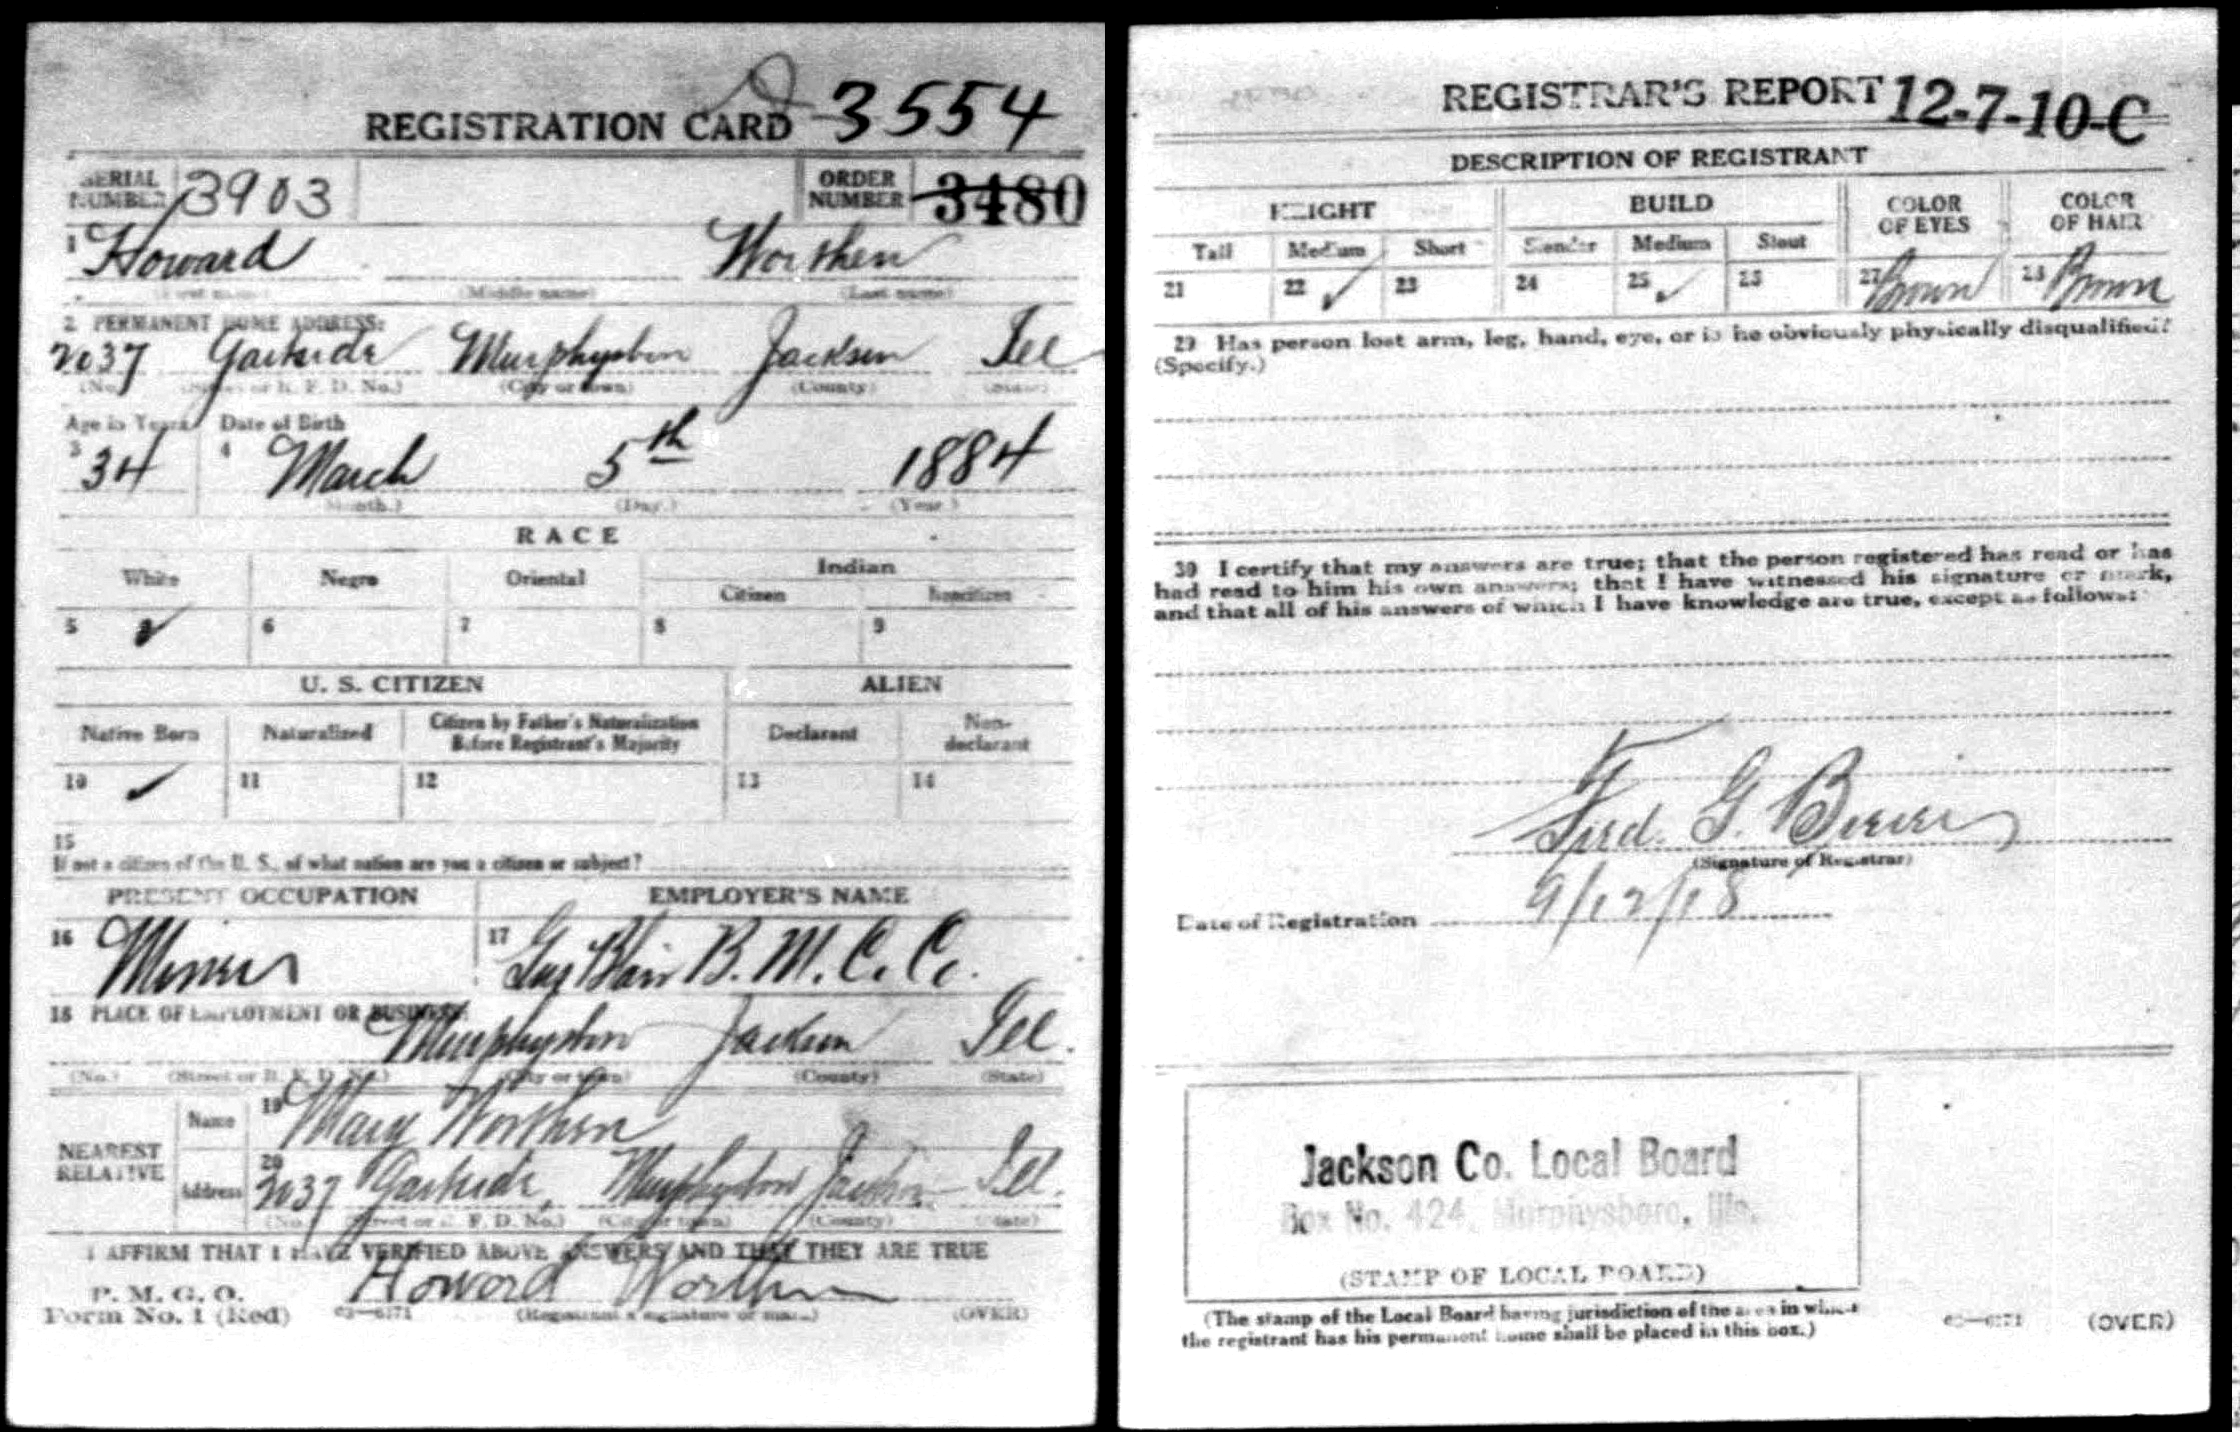 REGISTRATION CARD 3554
SERIAL NUMBER 3903 ORDER NUMBER 3480
1 Howard Worthen
(First name) (Middle name) (Last name)
2 PERMANENT HOME ADDRESS:
2037 Gartside Murphysboro Jackson Ill
(No.) (Street or R. F. D. No.) (City or town) (County) (State)
Age in Years Date of Birth
3 34 4 March 5th 1884
(Month.) (Day.) (Year.)
RACE
White Negro Oriental Indian
Citizen Noncitizen
5 ✓ 6 7 8 9
U. S. CITIZEN ALIEN
Native Born Naturalized Citizen by Father's Naturalization Before Registrant's Majority Declarant Non-declarant
10 ✓ 11 12 13 14
15
If not a citizen of the U. S., of what nation are you a citizen or subject?
PRESENT OCCUPATION EMPLOYER'S NAME
16 Miner 17 Gus Blair B. M. C. Co.
18 PLACE OF EMPLOYMENT OR BUSINESS:
Murphysboro Jackson Ill.
(No.) (Street or R. F. D. No.) (City or town) (County) (State)
NEAREST RELATIVE
Name 19 Mary Worthen
Address 20 2037 Gartside, Murphysboro Jackson Ill.
(No.) (Street or R. F. D. No.) (City or town) (County) (State)
I AFFIRM THAT I HAVE VERIFIED ABOVE ANSWERS AND THAT THEY ARE TRUE
P. M. G. O.
Form No. 1 (Red) 03—6171 Howard Worthen
(Registrant's signature or mark) (OVER)
REGISTRAR'S REPORT 12-7-10-C
DESCRIPTION OF REGISTRANT
HEIGHT BUILD COLOR OF EYES COLOR OF HAIR
Tall Medium Short Slender Medium Stout
21 22 ✓ 23 24 25 ✓ 26 27 Brown 28 Brown
29 Has person lost arm, leg, hand, eye, or is he obviously physically disqualified?
(Specify.)
30 I certify that my answers are true; that the person registered has read or has
had read to him his own answers; that I have witnessed his signature or mark,
and that all of his answers of which I have knowledge are true, except as follows:
G.
(Signature of Registrar)
Date of Registration 9/12/18
Jackson Co. Local Board
Box No. 424, Murphysboro, Ills.
(STAMP OF LOCAL BOARD)
(The stamp of the Local Board having jurisdiction of the area in which
the registrant has his permanent home shall be placed in this box.)
03—6171 (OVER)